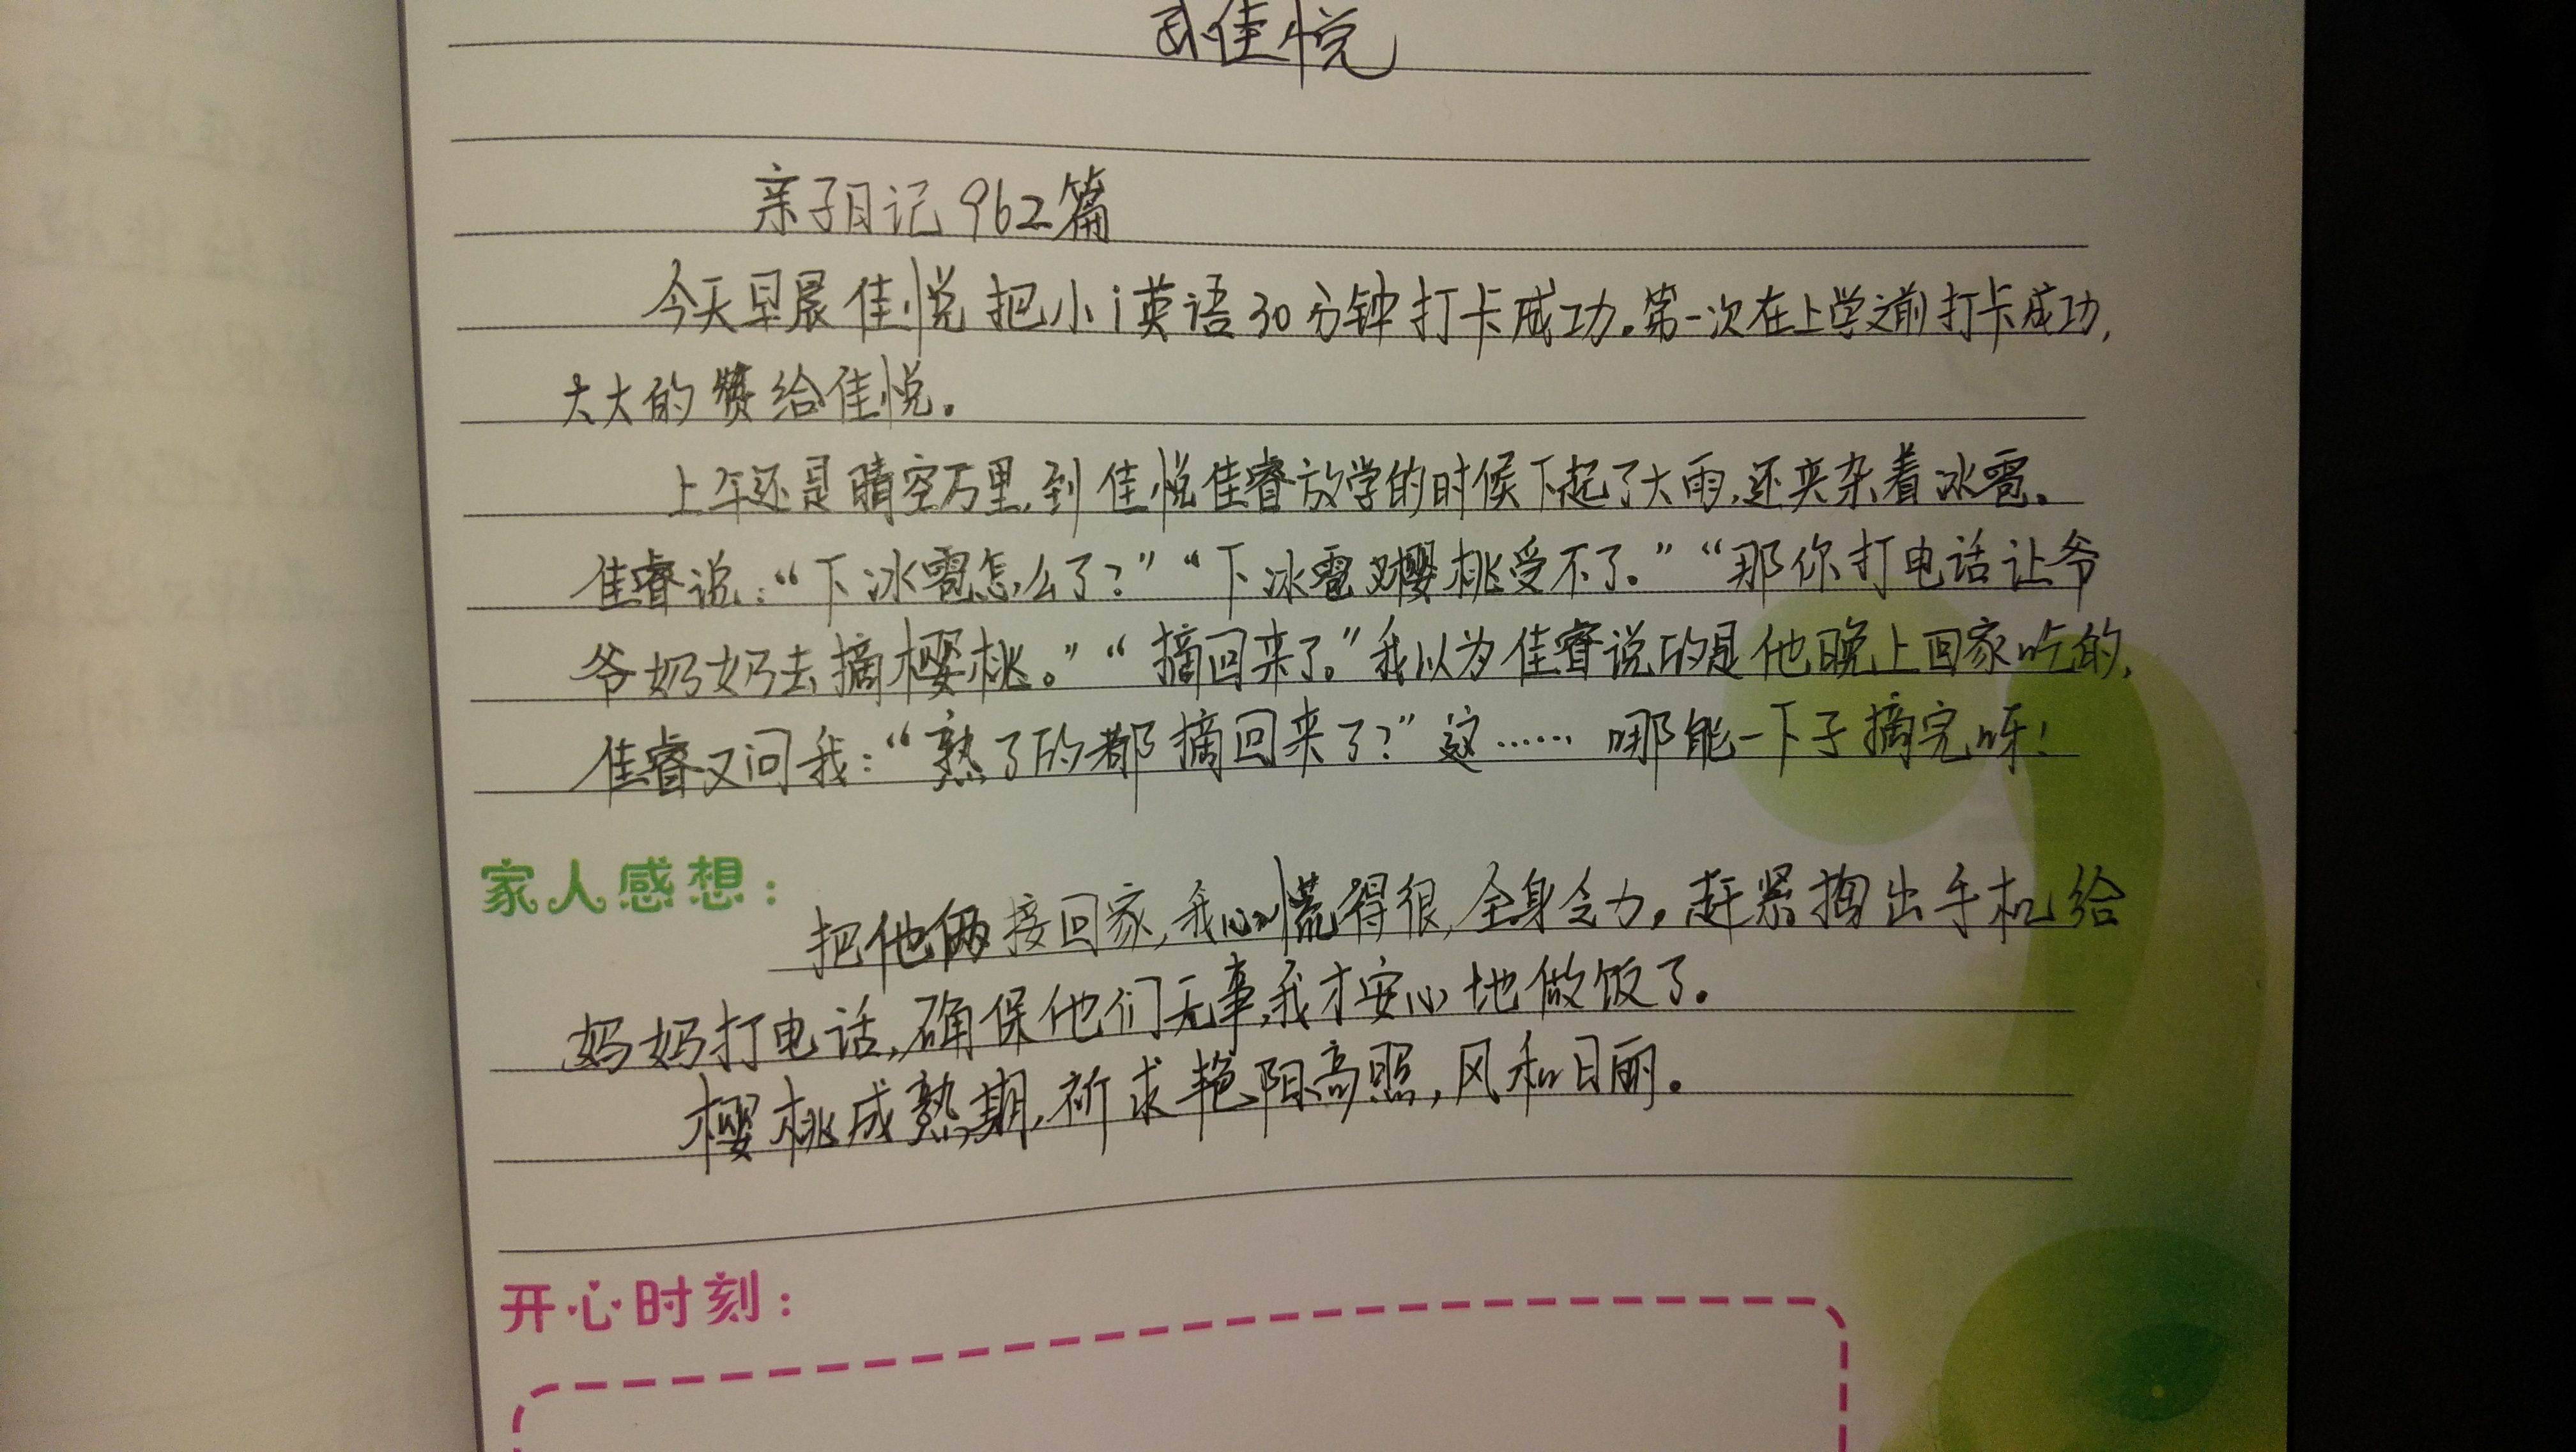 佳悦
亲子日记962篇
今天早晨佳悦把小i英语30分钟打卡成功。第一次在上学之前打卡成功,
大大的赞给佳悦。
上午还是晴空万里,到佳悦佳睿放学的时候下起了大雨,还夹杂着冰雹。
佳睿说:“下冰雹怎么了?”“下冰雹对樱桃受不了。”“那你打电话让爷
爷奶奶去摘樱桃。”“摘回来了。”我以为佳睿说的是他晚上回家吃的,
佳睿又问我:“熟了的都摘回来了?”这……哪能一下子摘完呀!
家人感想:
把他俩接回家,我心慌得很,全身乏力,赶紧掏出手机给
妈妈打电话,确保他们无事,我才安心地做饭了。
樱桃成熟期,祈求艳阳高照,风和日丽。
开心时刻: